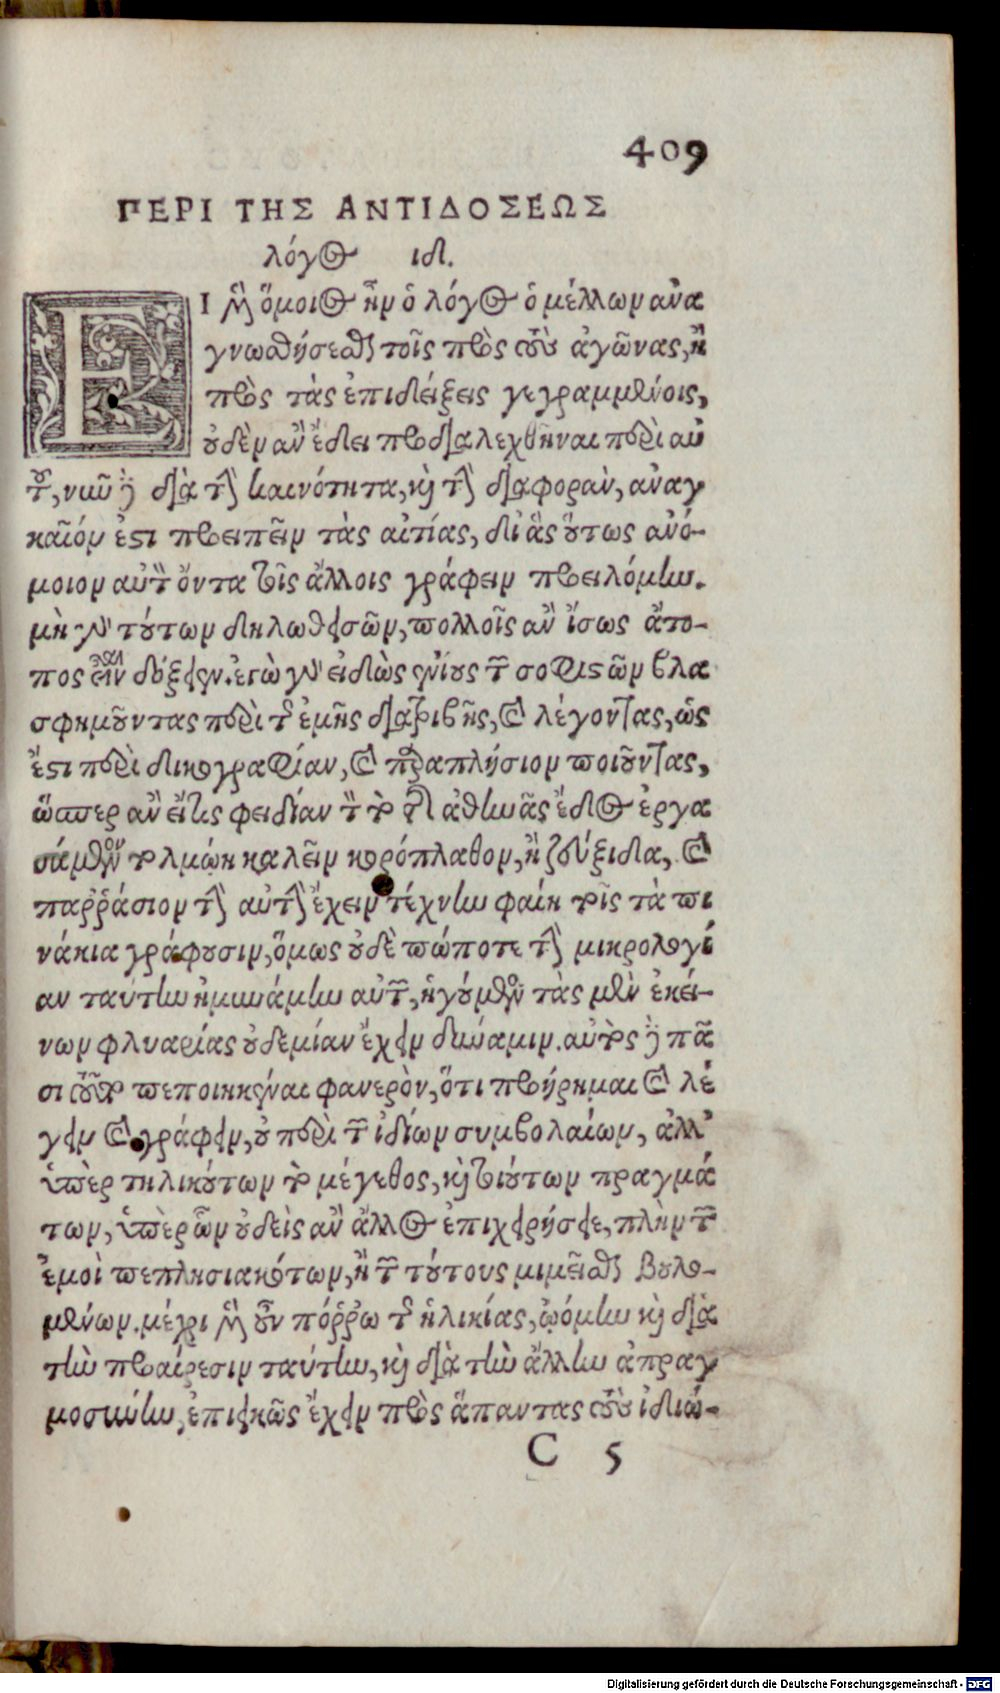 409
ΠΕΡΙ ΤΗΣ ΑΝΤΙΔΟΣΕΩΣ
λόγος ιδ.
ΕΙ μὲν ὅμοιος ἦν ὁ λόγος ὁ μέλλων ἀνα
γνωσθήσεσθαι τοῖς πρὸς τοὺς ἀγῶνας, ἢ
πρὸς τὰς ἐπιδείξεις γεγραμμένοις,
οὐδὲν ἂν ἔδει προδιαλεχθῆναι περὶ αὐ
τοῦ, νῦν δὲ διὰ τὴν καινότητα, καὶ τὴν διαφορὰν, ἀναγ
καῖόν ἐστι προειπεῖν τὰς αἰτίας, δι' ἃς οὕτως ἀνό-
μοιον αὐτὸν ὄντα τοῖς ἄλλοις γράφειν προειλόμην.
μὴ γὰρ τούτων δηλωθεισῶν, πολλοῖς ἂν ἴσως ἄτο-
πος εἶναι δόξειεν. ἐγὼ γὰρ εἰδὼς ἐνίους τῶν σοφιστῶν βλα
σφημοῦντας περὶ τῆς ἐμῆς διατριβῆς, καὶ λέγοντας, ὡς
ἔστι περὶ δικογραφίαν, καὶ παραπλήσιον ποιοῦντας,
ὥσπερ ἂν εἴ τις φειδίαν τὸν τὸ τῆς ἀθηνᾶς ἕδος ἐργα
σάμενον τολμῴη καλεῖν κοροπλάθον, ἢ ζεύξιδα, καὶ
παῤῥάσιον τὴν αὐτὴν ἔχειν τέχνην φαίη τοῖς τὰ πι
νάκια γράφουσιν, ὅμως οὐδὲ πώποτε τὴν μικρολογί
αν ταύτην ἠμυνάμην αὐτῶν, ἡγούμενος τὰς μὲν ἐκεί-
νων φλυαρίας οὐδεμίαν ἔχειν δύναμιν. αὐτὸς δὲ πᾶ
σι τοῦτο πεποιηκέναι φανερὸν, ὅτι προῄρημαι καὶ λέ
γειν καὶ γράφειν, οὐ περὶ τῶν ἰδίων συμβολαίων, ἀλλ'
ὑπὲρ τηλικούτων τὸ μέγεθος, καὶ τοιούτων πραγμά
των, ὑπὲρ ὧν οὐδεὶς ἂν ἄλλος ἐπιχειρήσειε, πλὴν τῶν
ἐμοὶ πεπλησιακότων, ἢ τῶν τούτους μιμεῖσθαι βουλο-
μένων. μέχρι μὲν οὖν πόῤῥω τῆς ἡλικίας, ᾠόμην καὶ διὰ
τὴν προαίρεσιν ταύτην, καὶ διὰ τὴν ἄλλην ἀπραγ
μοσύνην, ἐπιεικῶς ἔχειν πρὸς ἅπαντας τοὺς ἰδιώ-
C 5
Digitalisierung gefördert durch die Deutsche Forschungsgemeinschaft - DFG